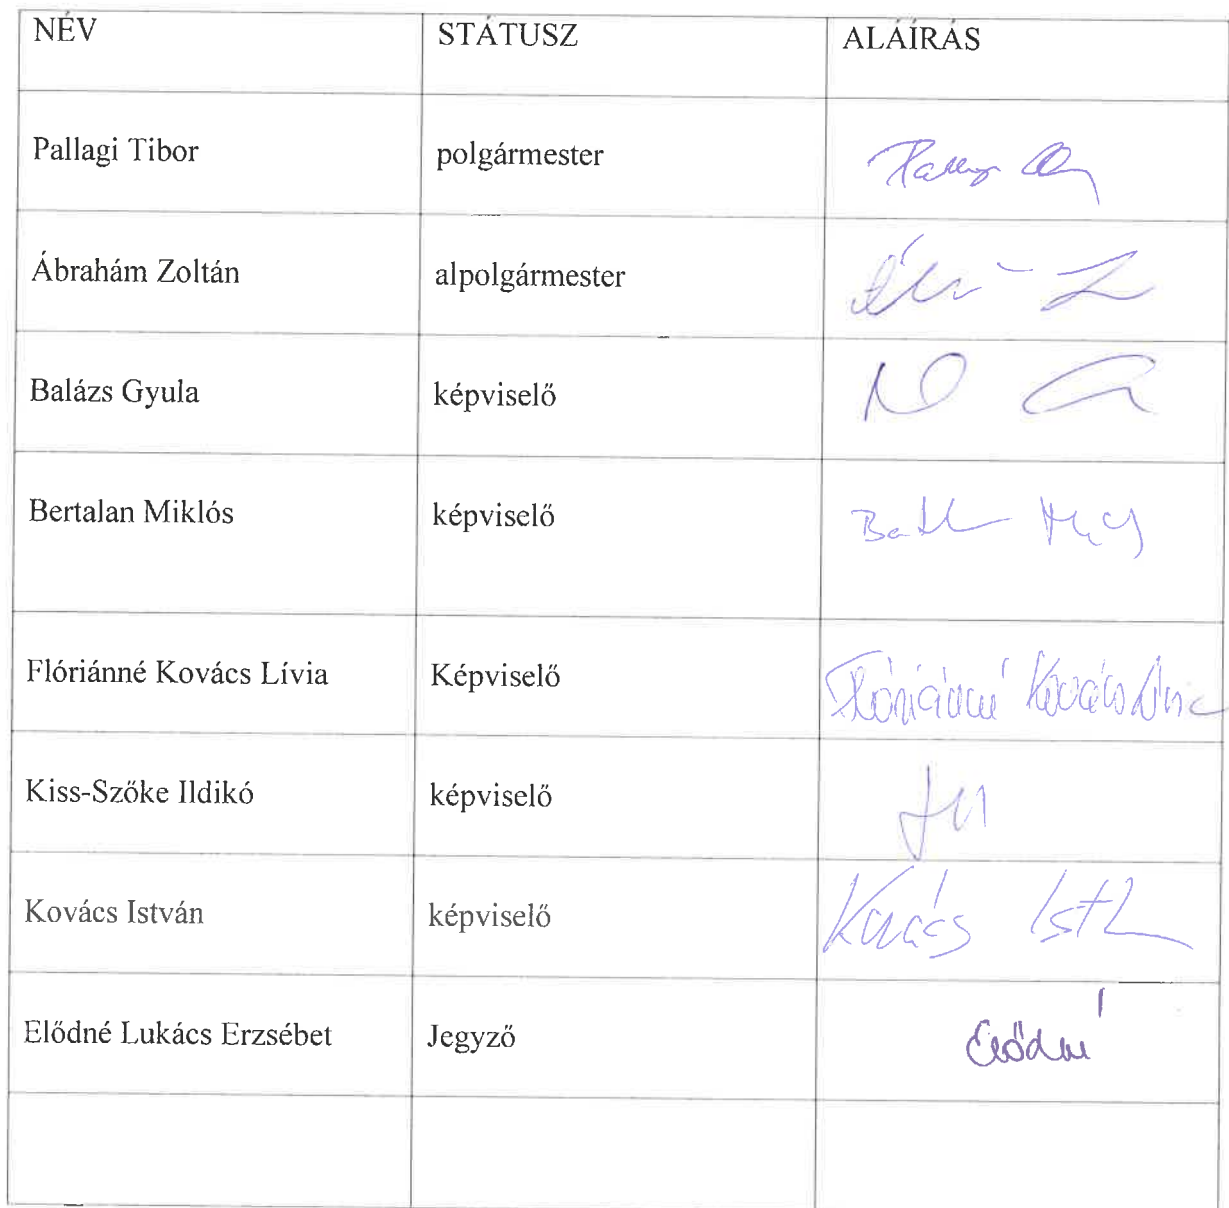 NÉV STÁTUSZ ALÁÍRÁS
Pallagi Tibor polgármester
Ábrahám Zoltán alpolgármester
Balázs Gyula képviselő
Bertalan Miklós képviselő
Flóriánné Kovács Lívia Képviselő Flóriánné Kovács Lívia
Kiss-Szőke Ildikó képviselő
Kovács István képviselő Kovács
Elődné Lukács Erzsébet Jegyző Elődné